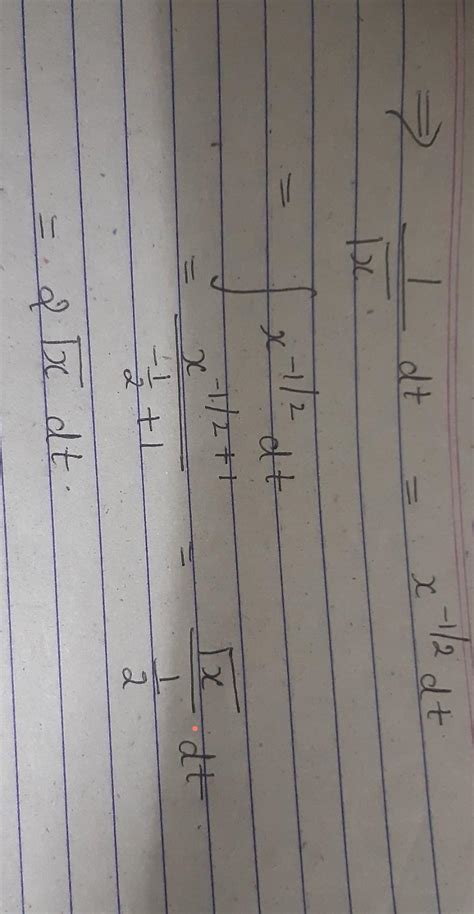 ⇒ 1/√x dt = x^{-1/2} dt
= ∫ x^{-1/2} dt
= x^{-1/2+1} / (-1/2 + 1) = √x / (1/2) · dt
= 2√x dt.